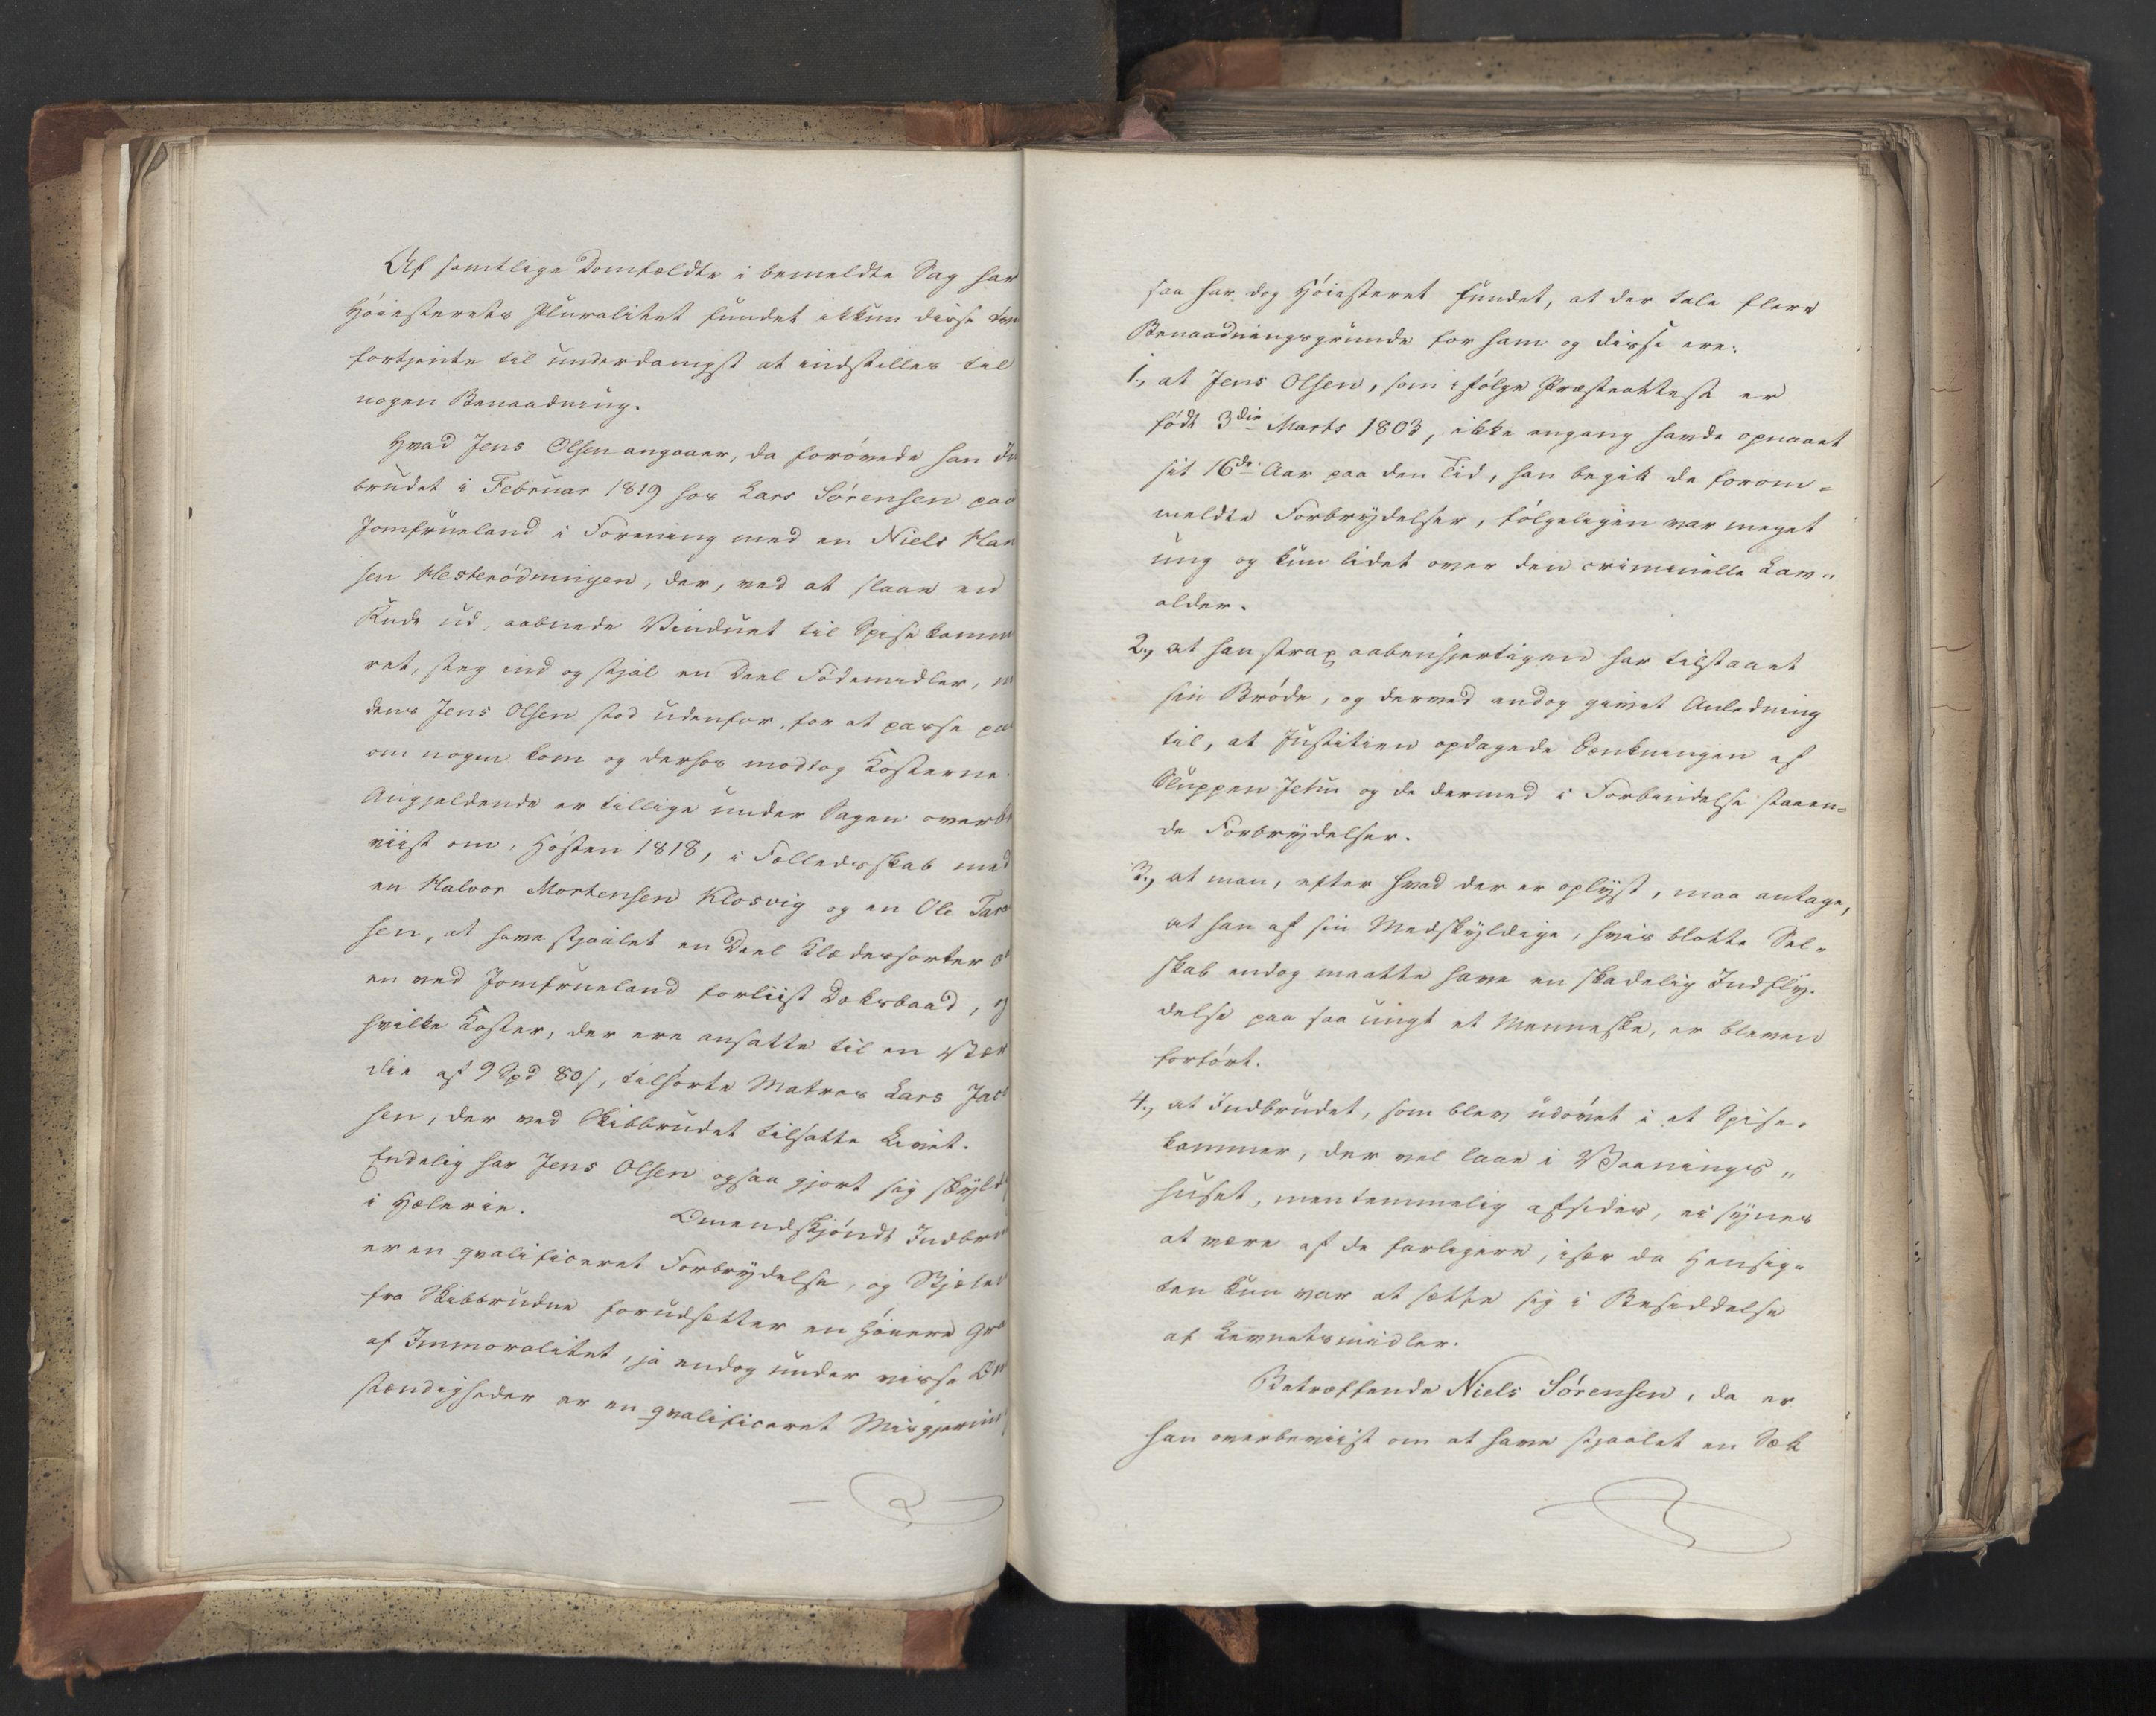 Af samtlige Domfældte i bemeldte Sag har
Høiesterets Pluralitet fundet ikkun disse
fortjente til underdanigst at indstilles til
nogen Benaadning.
Hvad Jens Olsen angaaer, da forøvede han In
brudet i Februar 1819 hos Lars Sørensen paa
Jomfrueland i Forening med en Niels Han
sen Hesterødningen, der, ved at slaae en
Rude ud, aabnede Vinduet til Spisekamme
ret, steg ind og stjal en Deel Fødemidler, 
dens Jens Olsen stod udenfor, for at passe paa
om nogen kom og derhos modtog Kosterne.
Angjeldende er tillige under Sagen overbe
viist om, Høsten 1818, i Fælledsskab med
en Halvor Mortensen Klosvig og en Ole Tar
sen, at have stjaalet en Deel Klædessorter
en ved Jomfrueland forliist Dæksbaad, 
hvilke Koster, der ere ansatte til en Vær
die af 9 Spd 80/, tilhørte Matros Lars Jac
sen, der ved Skibbrudet tilsatte Livet.
Endelig har Jens Olsen ogsaa gjort sig skyld
i Hælerie. Omendskjøndt Indbru
er en qvalificeret Forbrydelse, og Stjæle
fra Skibbrudne forudsætter en høiere Gra
af Immoralitet, ja endog under visse Om
stændigheder er en qvalificeret Misgjerni
saa har dog Høiesteret fundet, at der tale flere
Benaadningsgrunde for ham og disse ere:
1., at Jens Olsen, som ifølge Præsteattest er
født 3die Marts 1803, ikke engang havde opnaaet
sit 16de Aar paa den Tid, han begik de forom=
meldte Forbrydelser, følgeligen var meget
ung og kun lidet over den criminelle Lav"
alder.
2., at han strax aabenhjertigen har tilstaaet
sin Brøde, og derved endog givet Anledning
til, at Justitien opdagede Sænkningen af
Sluppen Jehu og de dermed i Forbindelse staaen=
de Forbrydelser.
3., at man, efter hvad der er oplyst, maa antage,
at han af sin Medskyldige, hvis blotte Sel"
skab endog maatte have en skadelig Indfly-
delse paa saa ungt et Menneske, er bleven
forført.
4., at Indbrudet, som blev udøvet i et Spise-
kammer, der vel laae i Vaanings"
huset, men temmelig afsides, ei synes
at være af de farligere, især da Hensig-
ten kun var at sætte sig i Besiddelse
af Levnetsmidler.
Betræffende Niels Sørensen, da er
han overbeviist om at have stjaalet en Sæk